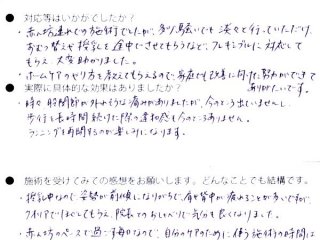 ● 対応等はいかがでしたか？
・赤ん坊連れでの施術でしたが、多少騒いでも淡々と行っていただけ、
おむつ替えや授乳も途中でさせてもらうなど、フレキシブルに対応して
もらえ、大変助かりました。
・ホームケアのやり方も教えてもらえるので、家庭でも改善に向けた努力ができて
ありがたいです。
● 実際に具体的な効果はありましたか？
・時々股関節が外れそうな痛みがありましたが、今のところ出ていません。
・歩行を長時間続けた際の違和感も今のところありません。
ランニングを再開するのが楽しみになります。
● 施術を受けてみての感想をお願いします。どんなことでも結構です。
・授乳中なので姿勢が前傾になりがちで、肩と背中が痛むことが多いですが、
クオリアでほぐしてもらえ、院長とのおしゃべりで気分も良くなりました。
・赤ん坊のペースで過ごす毎日なので、自分のケアのために使う施術の時間は